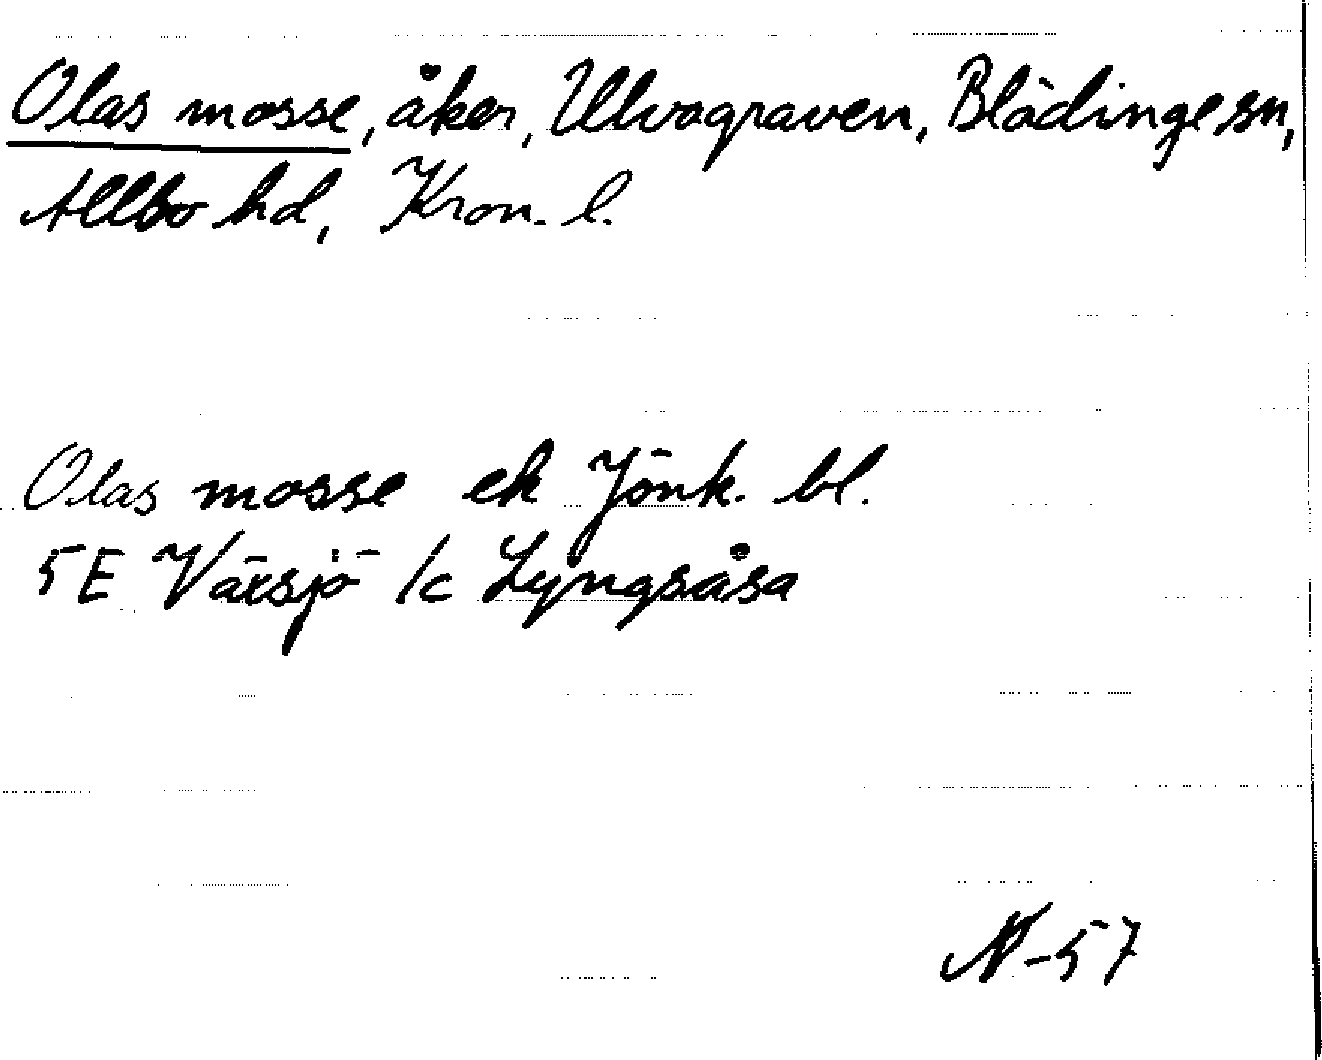 Olas mosse, åker, Ulvagraven, Blädinge sn,
Allbo hd, Kron. l.
Olas mosse ek Jönk. bl.
5E Växsjö /c Lyngsåsa
N-57